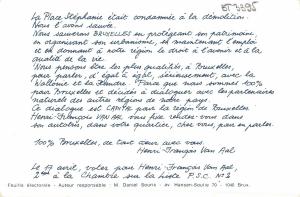 ET 3295
La Place Stéphanie était condamnée à la démolition.
Nous l'avons sauvée.
Nous sauverons BRUXELLES en protégeant son patrimoine,
en organisant son urbanisme, en maintenant l'emploi
et en donnant à notre région le droit à l'avenir et à la
qualité de la vie.
Nous pensons être les plus qualifiés, à Bruxelles,
pour parler, d'égal à égal, sérieusement, avec la
Wallonie et la Flandre. Parce que nous sommes 100%
pour Bruxelles et décidés à dialoguer avec les partenaires
naturels des autres régions de notre pays.
Ce dialogue est capital pour la région de Bruxelles.
Henri-François VAN AAL vous fixe rendez-vous dans
son autobus, dans votre quartier, chez vous, pour en parler.
100% Bruxelles, de tout cœur avec vous.
Henri-François Van Aal
Le 17 avril, votez pour Henri-François Van Aal,
2ème à la Chambre sur la Liste P.S.C. N°3
Feuille électorale - Auteur responsable : M. Daniel Bourla - av. Hansen-Soulie 70 - 1040 Brux.